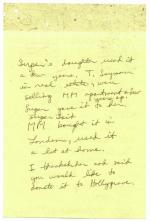 Super's daughter used it
a few years, T. Sayson
in real estate, was
selling MM apartment a few
years ago,
Super gave it to her
super sait
MM bought it in
London, used it
a lot at home.
I thanked her and said
you would like to
donate it to Hollygrove.